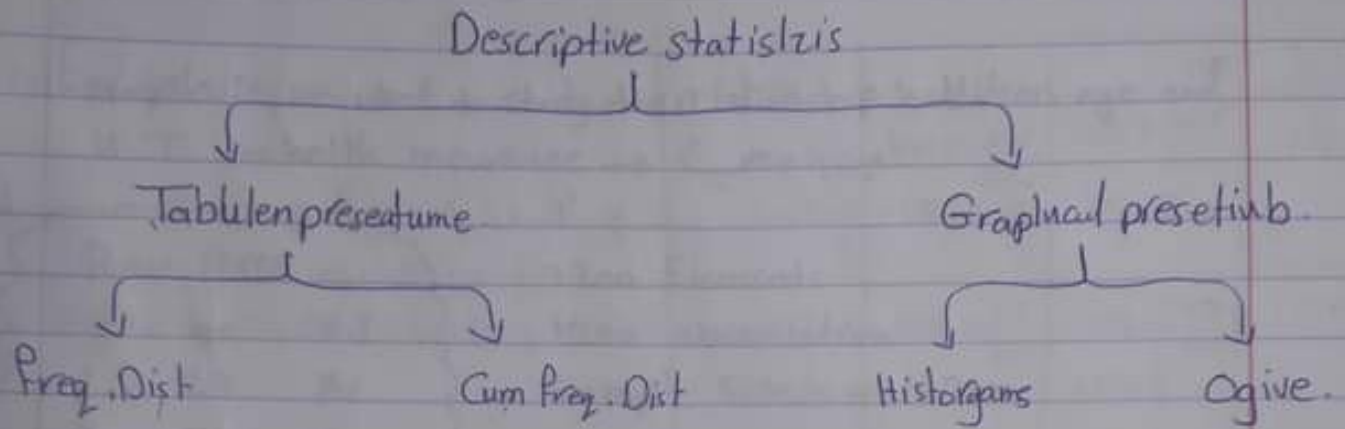 Descriptive statislzis
Tabulen preseatume Graplucal presetiub.
Freq. Dist Cum freq. Dist Historgams Ogive.